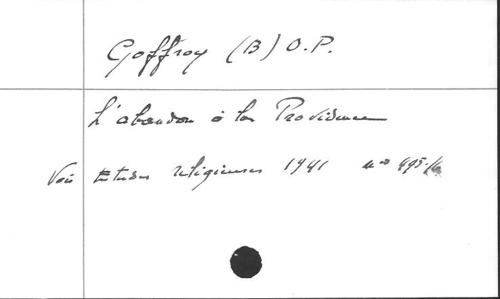 Goffroy (B) O.P.
L'abandon à la Providence
Voir Etudes religieuses 1941 nos 495-